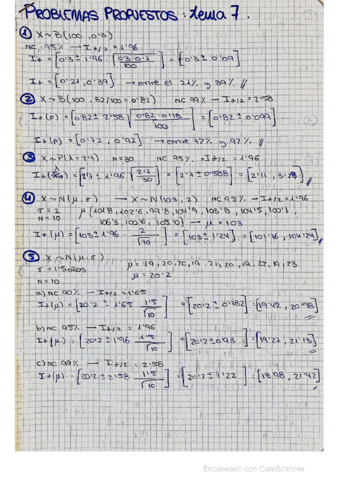 PROBLEMAS PROPUESTOS: tema 7.
① X~B(100, 0'3)
NC 95% → I+/2 = 1'96
I+ = [0'3 ± 1'96 · √(0'3·0'7/100)] = [0'3 ± 0'09]
I+ = [0'21, 0'39] → entre el 21% y 39%//
② X~B(100, 82/100 = 0'82) NC 99% → I+/2 = 2'58
I+(p) = [0'82 ± 2'58 √(0'82·0'18/100)] = [0'82 ± 0'099]
I+(p) = [0'72, 0'92] → entre 72% y 92%//
③ X~P(λ = 2'4) n=30 NC 95% → I+/2 = 1'96
= [2'11, 3'28]//
④ X~N(μ, σ) → N(103, 2) NC 95% → I+/2 = 1'96
σ = 2 μ (101'8, 102'6, 99'8, 104'9, 103'8, 104'5, 100'1,
n = 10 106'3, 100'6, 105'0) → μ = 103
I+(μ) = [103 ± 1'96 · 2/√10] = [103 ± 1'24] = [101'76, 104'24]//
⑤ X~N(μ, σ) μ = 19, 20, 20, 19, 21, 20, 19, 22, 19, 23
μ = 20'2
n = 10
a) NC 90% → I+/2 = 1'65
I+(μ) = [20'2 ± 1'65 1'5/√10] = [20'2 ± 0'782] = [19'42, 20'98]
b) NC 95% → I+/2 = 1'96
I+(μ) = [20'2 ± 1'96 1'5/√10] = [20'2 ± 0'93] = [19'27, 21'13]
c) NC 99% → I+/2 = 2'58
I+(μ) = [20'2 ± 2'58 1'5/√10] = [20'2 ± 1'22] = [18'98, 21'42]
Escaneado con CamScanner